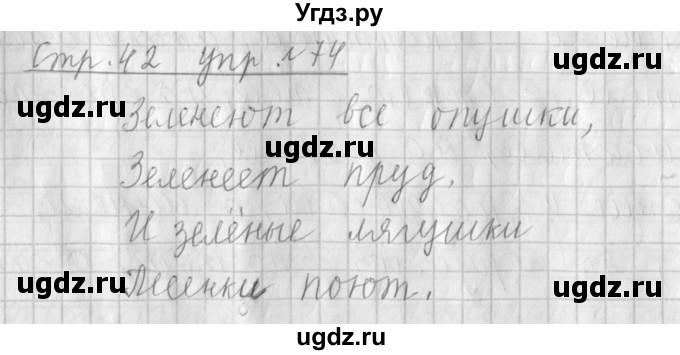 Угдз.ру
Стр. 42 упр. №74
Зеленеют все опушки,
Зеленеет пруд.
И зелёные лягушки
Песенки поют.
ugdz.ru
ugdz.ru
ugdz.ru
ugdz.ru
ugdz.ru
ugdz.ru
ugdz.ru